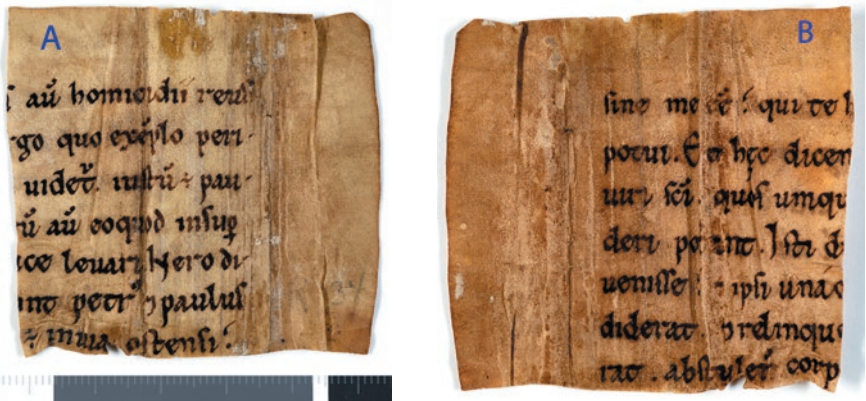 A
aū homicidii reus
go quo exēplo peri-
uidet᷑. iustū ÷ pau-
ū aū eoquod insuꝑ
ce leuari Nero di-
nt petrꝰ ⁊ paulus
÷ inuia ostensi.
B
sine me cē᷑ : qui te h
potui. Et hęc dicen
uiri sc̄i. quos umqu
deri potint. Isti di
uenisse ÷ ipsi una c
diderat ⁊ relinque
rat. abstuler̄ corp